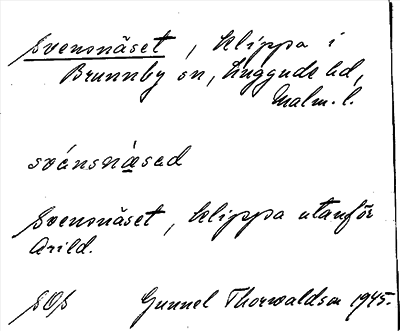 Svensnäset, klippa i
Brunnby sn, Luggude hd,
Malm. l.
svénsnæsed
Svensnäset, klippa utanför
Arild.
SOS Gunnel Thorwaldson 1945.